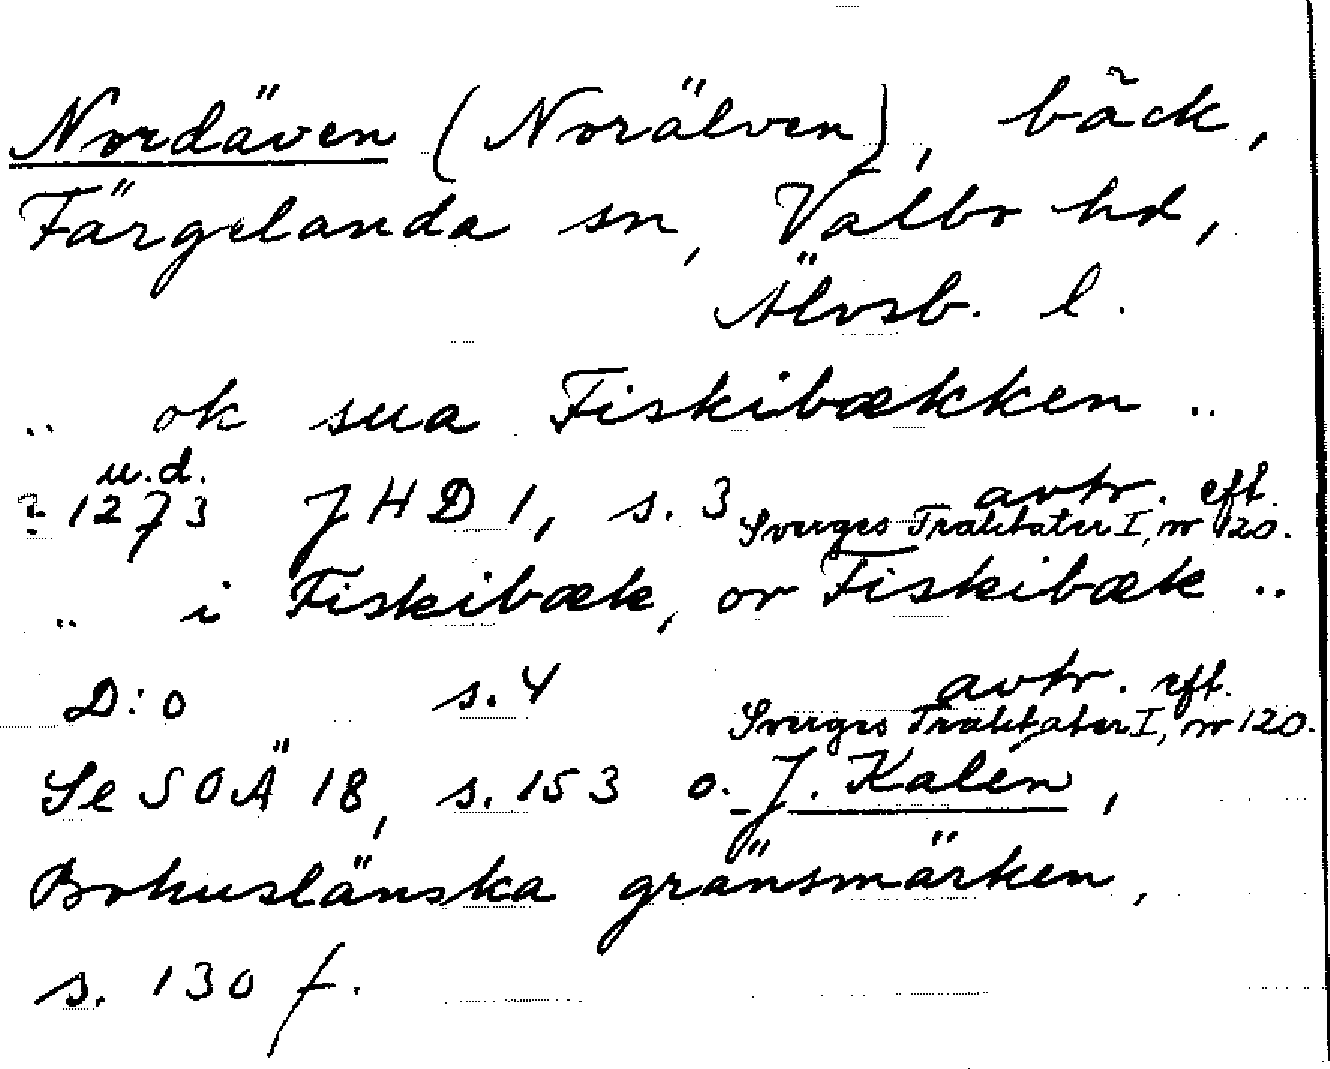 Nordäven (Norälven), bäck,
Färgelanda sn, Valbo hd,
Älvsb. l.
.. ok sua Fiskibækken ..
u.d.
? 1273 JHD 1, s. 3 avtr. eft.
Sverges Traktater I, nr 120.
.. i Fiskibæk, or Fiskibæk ..
D:o s. 4 avtr. eft.
Sverges Traktater I, nr 120.
Se SOÄ 18, s. 153 o. J. Kalén,
Bohuslänska gränsmärken,
s. 130 f.